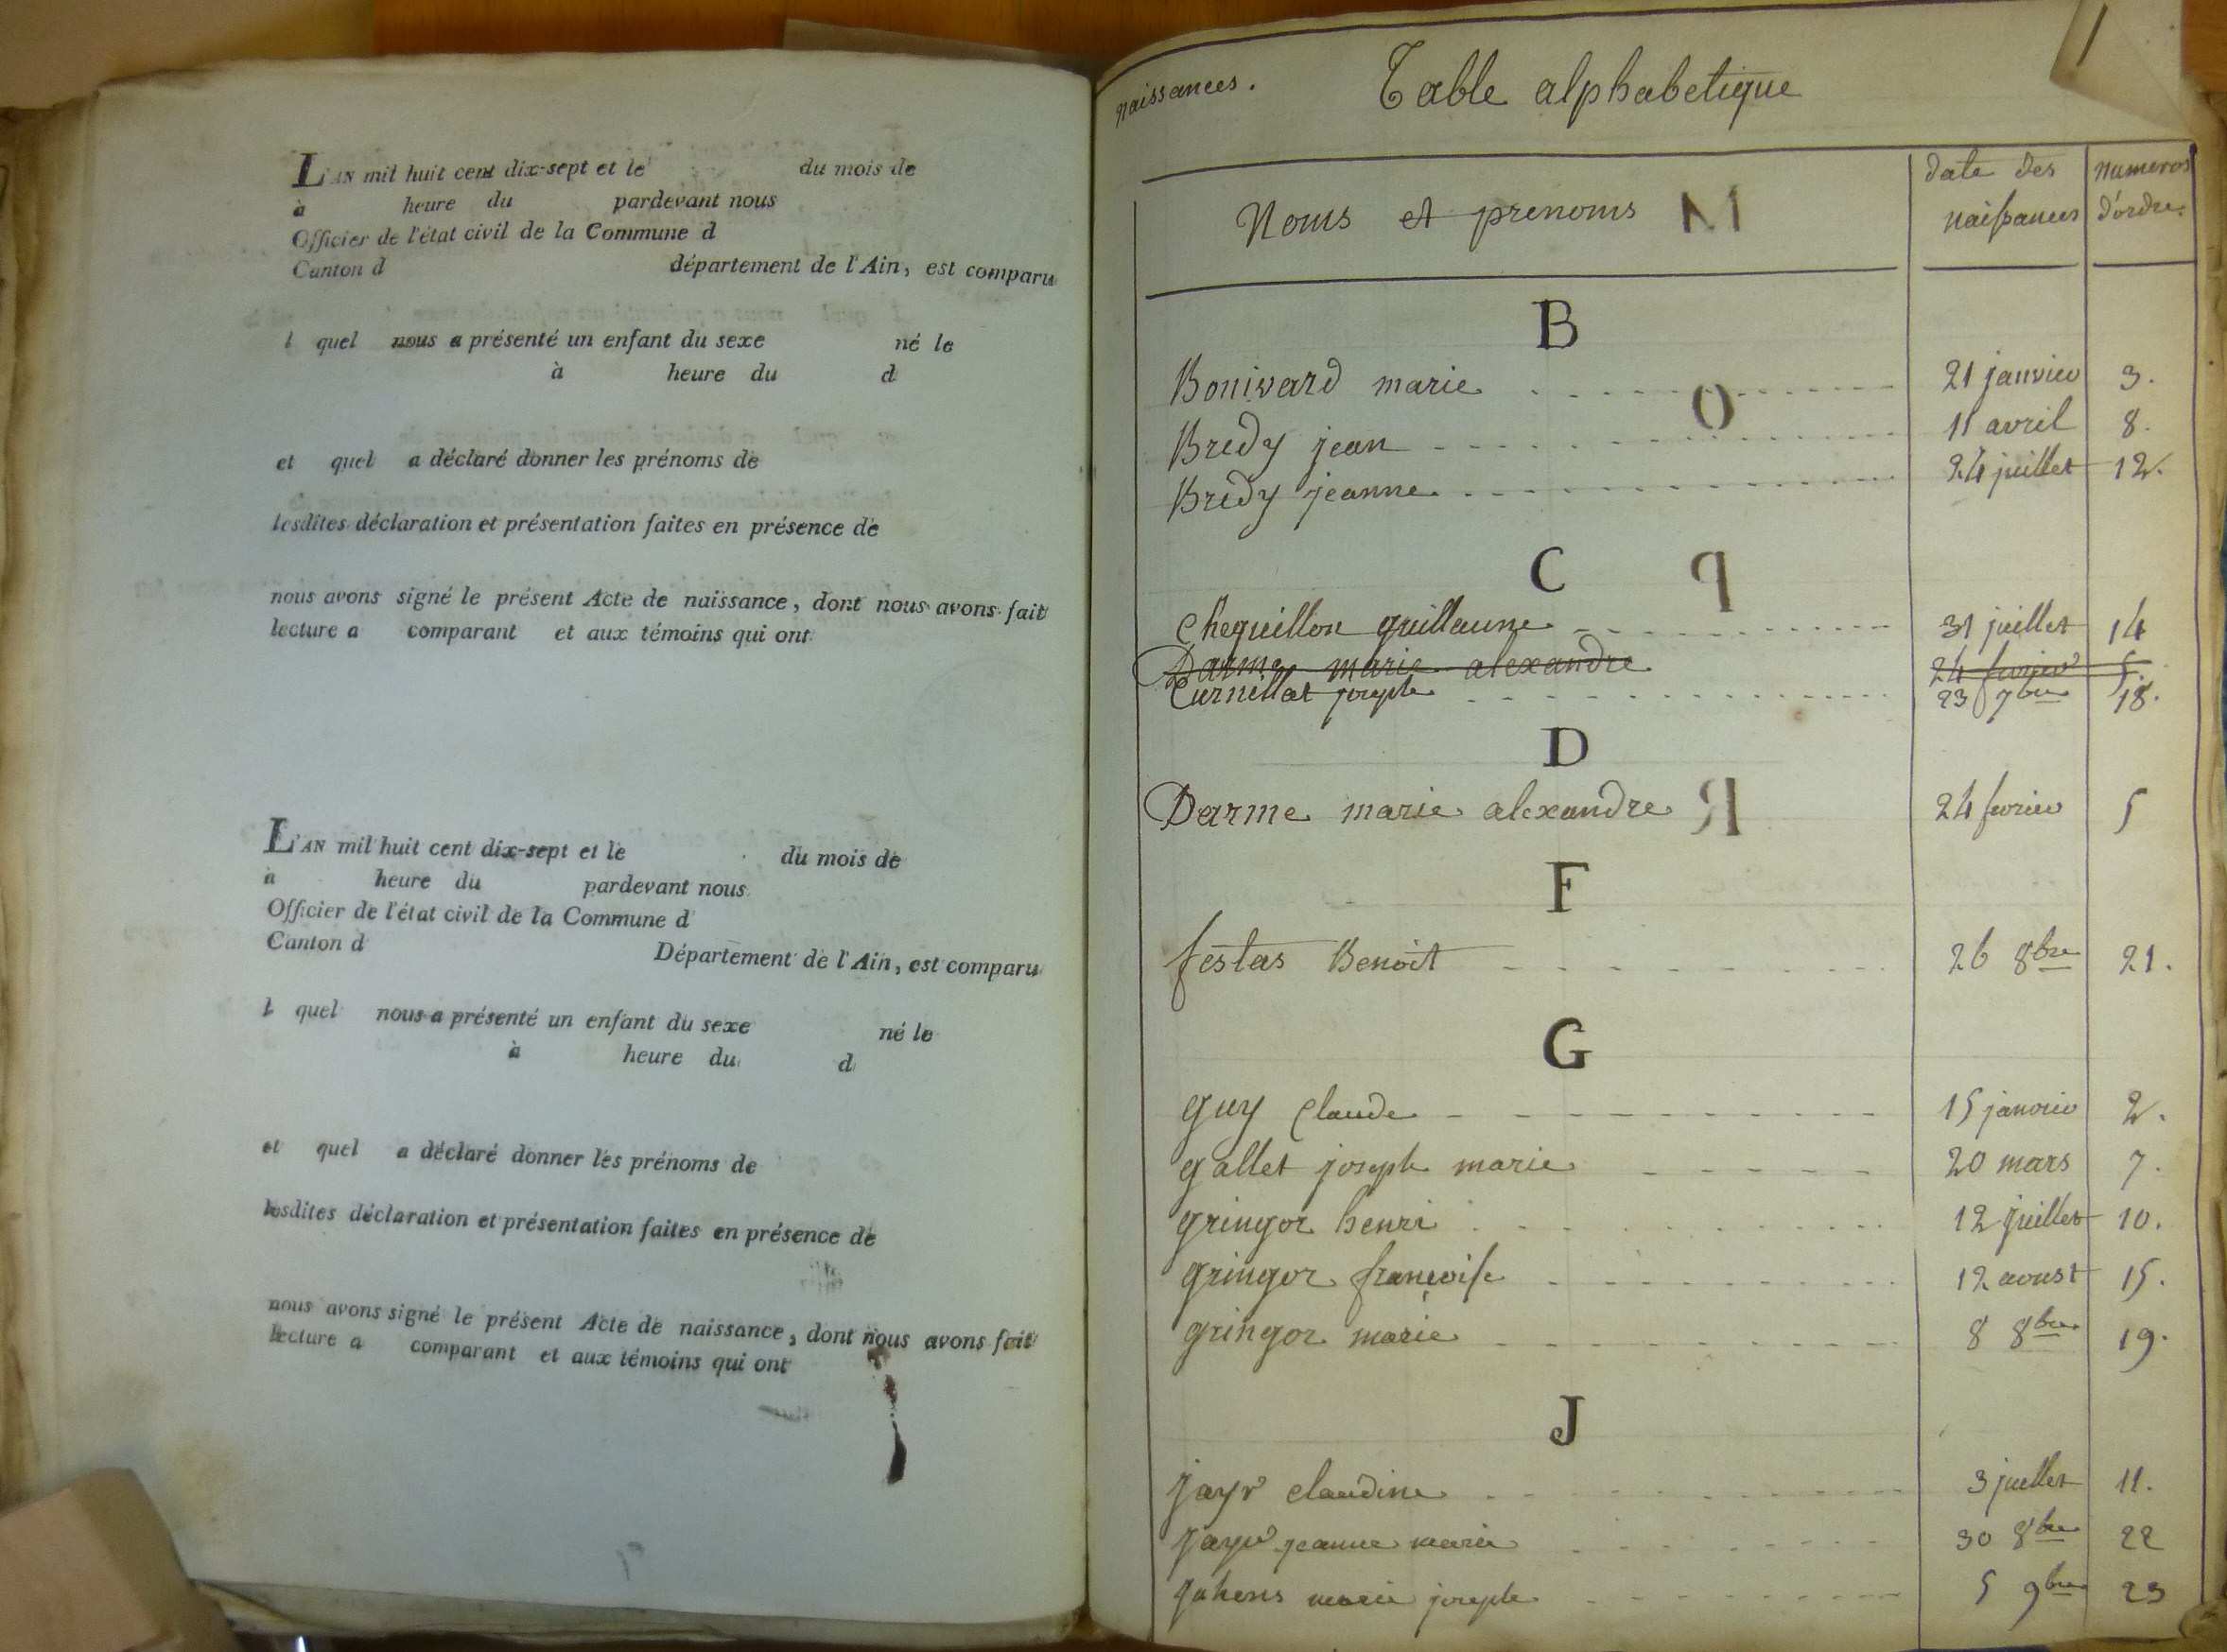 L'AN mil huit cent dix-sept et le du mois de
à heure du pardevant nous
Officier de l'état civil de la Commune d
Canton d département de l'Ain, est comparu
l quel nous a présenté un enfant du sexe né le
à heure du d
et quel a déclaré donner les prénoms de
lesdites déclaration et présentation faites en présence de
nous avons signé le présent Acte de naissance, dont nous avons fait
lecture a comparant et aux témoins qui ont
L'AN mil huit cent dix-sept et le du mois de
à heure du pardevant nous
Officier de l'état civil de la Commune d
Canton d Département de l'Ain, est comparu
l quel nous a présenté un enfant du sexe né le
à heure du d
et quel a déclaré donner les prénoms de
lesdites déclaration et présentation faites en présence de
nous avons signé le présent Acte de naissance, dont nous avons fait
lecture a comparant et aux témoins qui ont
naissances. Table alphabetique
Noms et prenoms date des naissances numeros d'ordre.
B
Bonivard marie 21 janvier 3.
Bredy jean 11 avril 8.
Bredy jeanne 24 juillet 12.
C
Chequillon guillaume 31 juillet 14
Darme marie alexandre 24 fevrier 5.
Curnillat joseph 23 7bre 18.
D
Darme marie alexandre 24 fevrier 5
F
festas Benoit 26 8bre 21.
G
guy Claude 15 janvier 2.
gallet joseph marie 20 mars 7.
gringoz henri 12 juillet 10.
gringoz françoise 12 aoust 15.
gringoz marie 8 8bre 19.
J
jayr claudine 3 juillet 11.
jayr jeanne marie 30 8bre 22
johens marie joseph 5 9bre 23